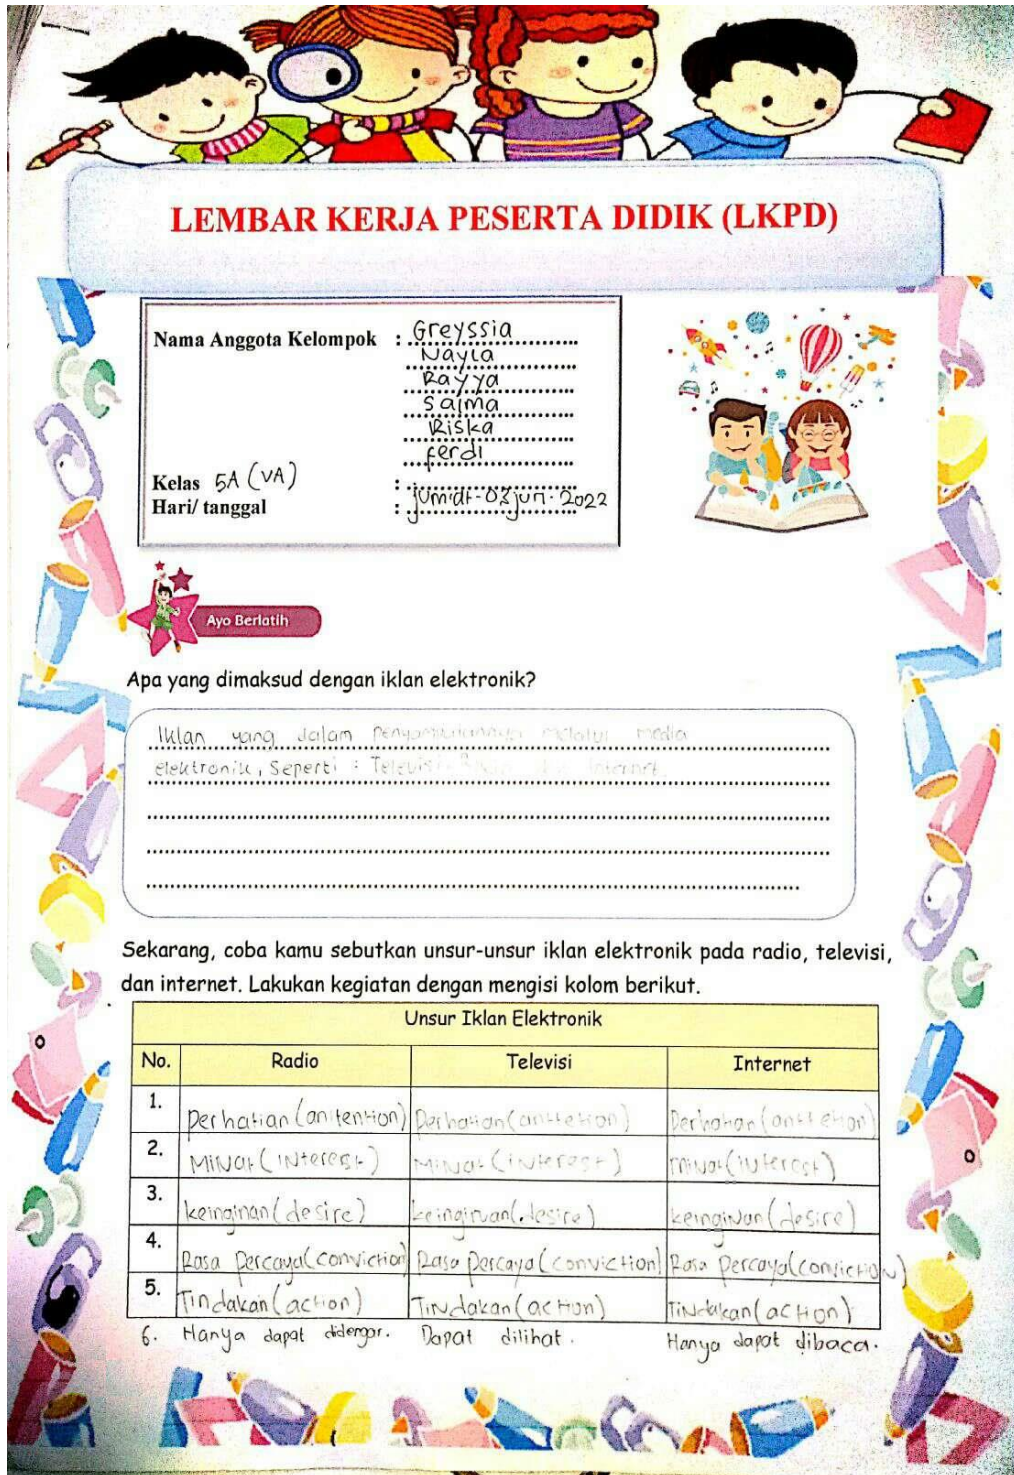 LEMBAR KERJA PESERTA DIDIK (LKPD)
Nama Anggota Kelompok : Greyssia
Nayla
Rayya
Salma
Riska
Ferdi
Kelas 5A (VA) :
Hari/ tanggal : 2022
Ayo Berlatih
Apa yang dimaksud dengan iklan elektronik?
Iklan yang dalam penyampaiannya melalui media
elektronik, Seperti : Televisi internet
Sekarang, coba kamu sebutkan unsur-unsur iklan elektronik pada radio, televisi,
dan internet. Lakukan kegiatan dengan mengisi kolom berikut.
Unsur Iklan Elektronik
No. Radio Televisi Internet
1. Perhatian (anitention) Perhatian (anttetion) Perhatian (anttetion)
2. Minat (interest) Minat (interest) Minat (interest)
3. keinginan (desire) keinginan (desire) keinginan (desire)
4. Rasa percaya (conviction) Rasa percaya (conviction) Rasa percaya (conviction)
5. Tindakan (action) Tindakan (action) Tindakan (action)
6. Hanya dapat didengar. Dapat dilihat. Hanya dapat dibaca.